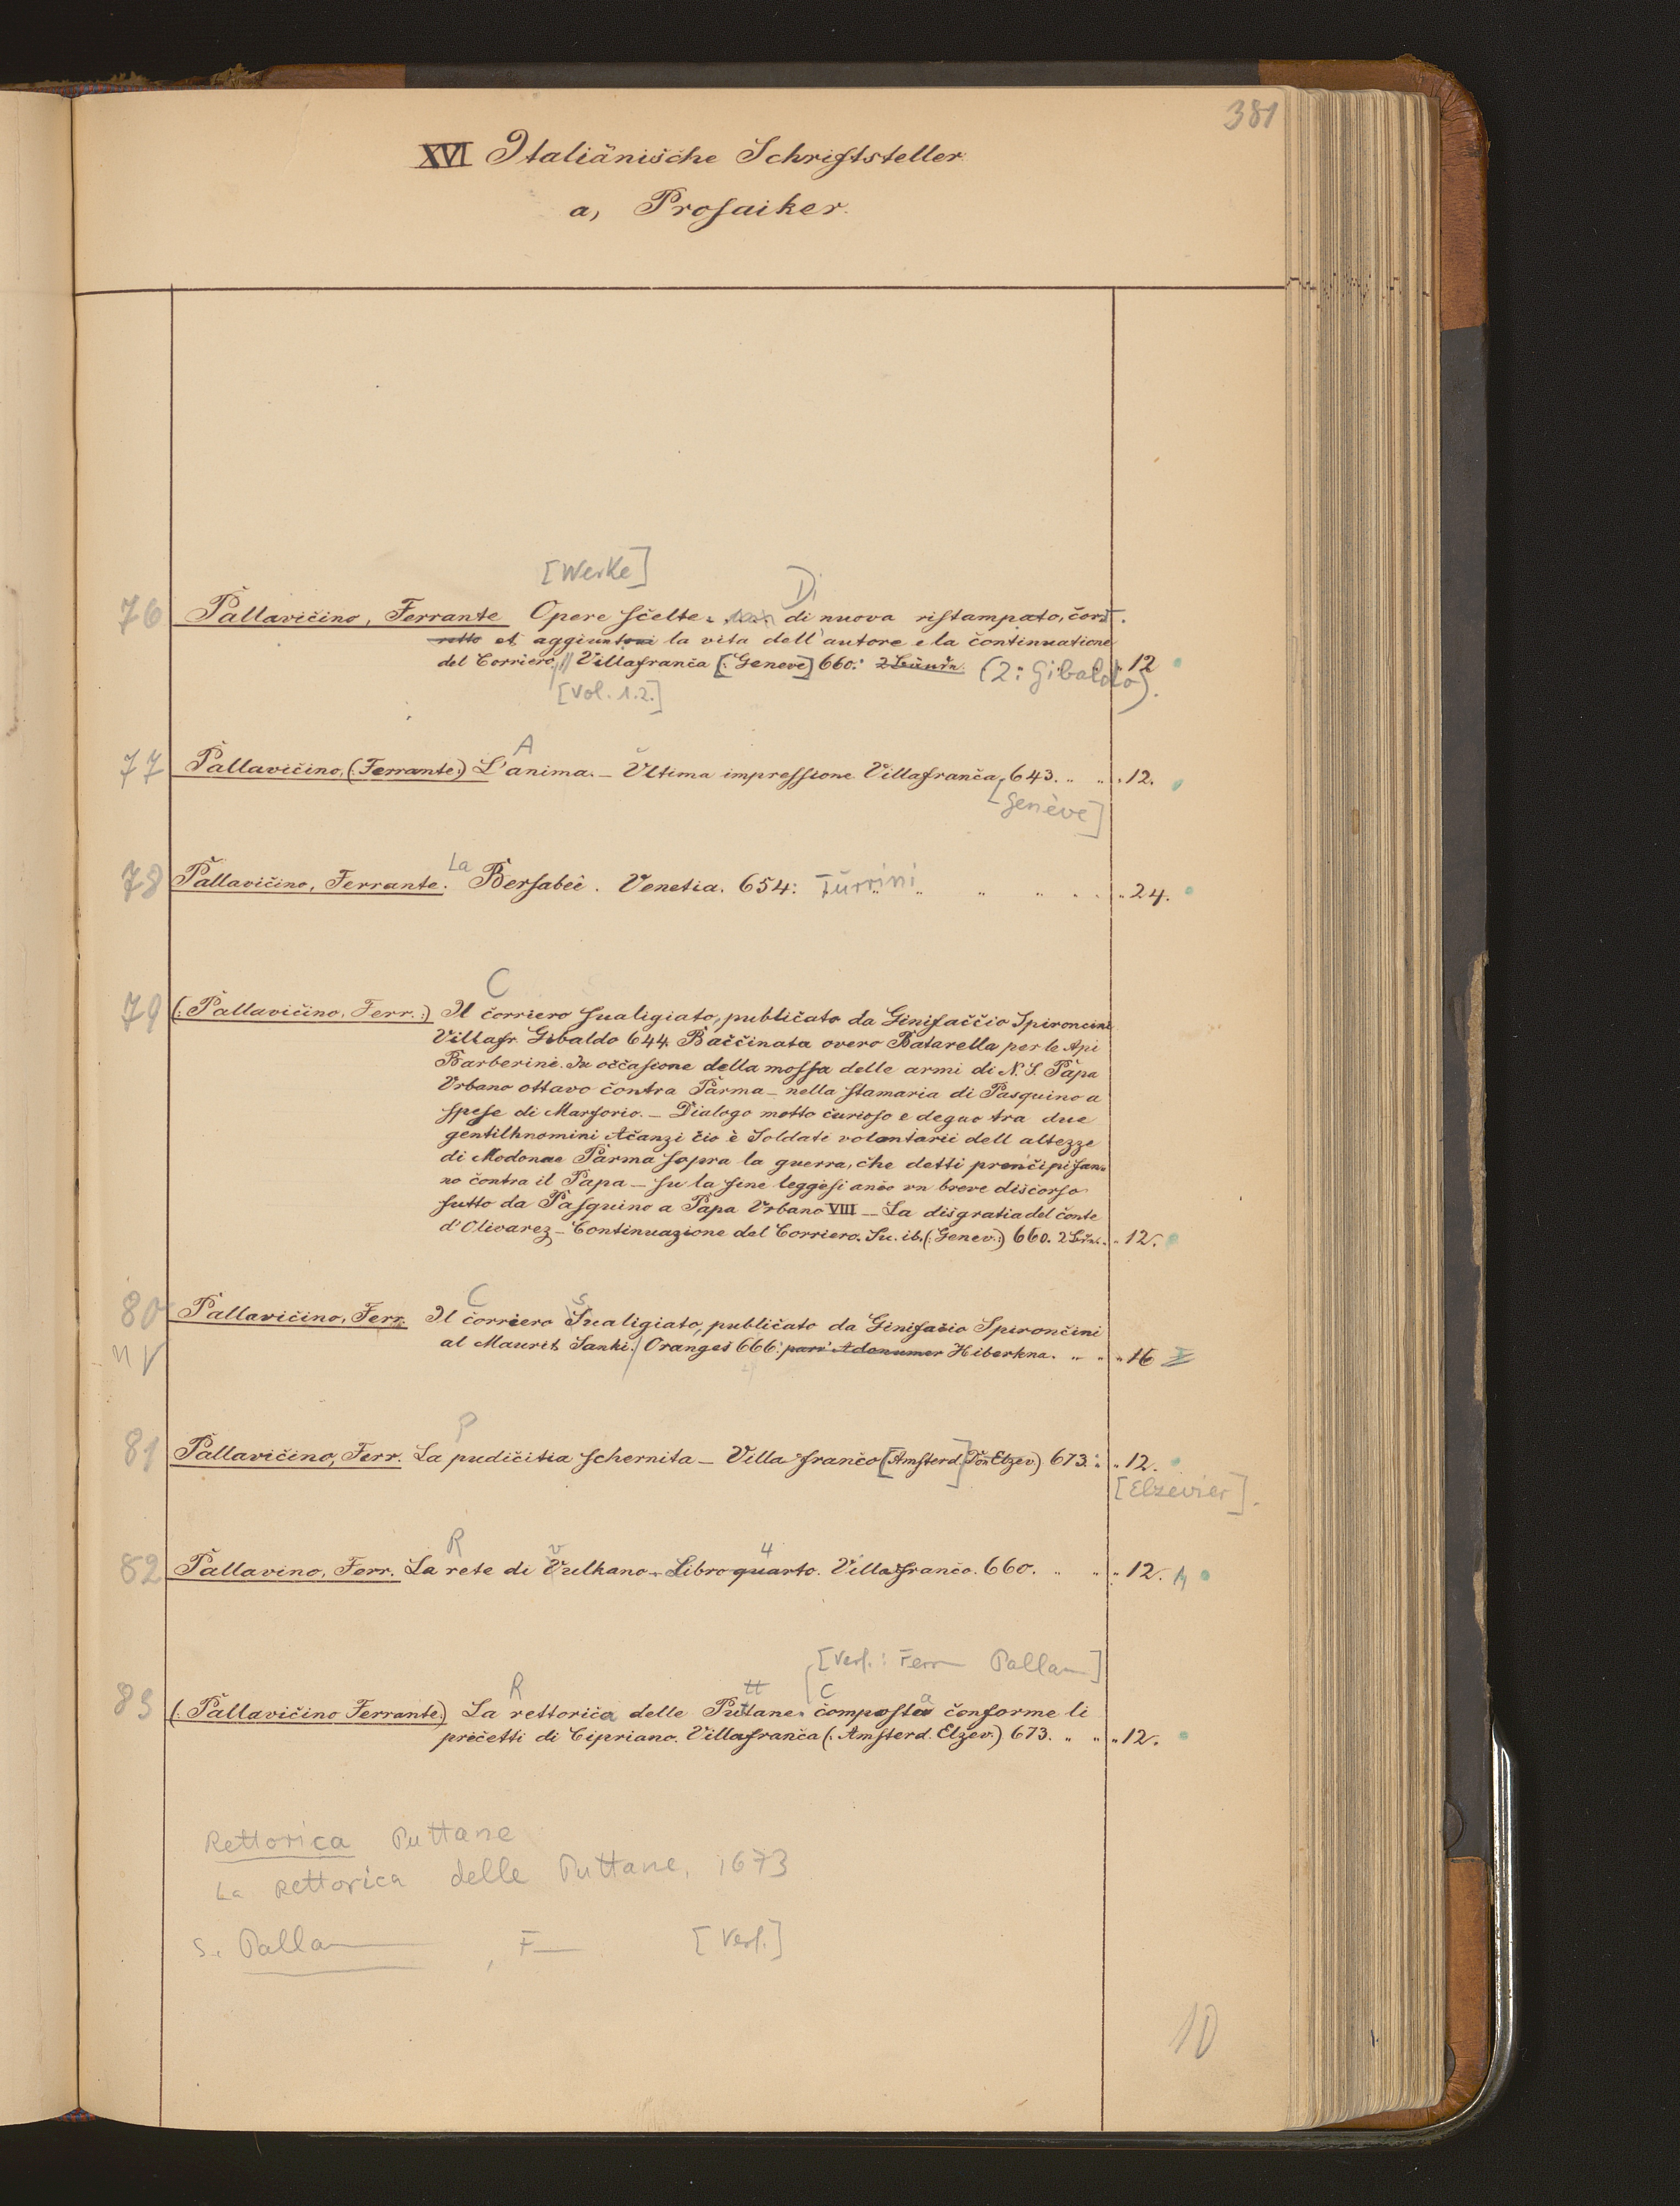 381
XVI Italiänische Schriftsteller
a, Prosaiker.
[Werke] Di
76 Pallavicino, Ferrante Opere scelte. di nuova ristampato, cor
rotto et aggiuntovi la vita dell'autore e la continuatione
del Corriero // Villafranca [: Geneve] 660: 2 Bände. (2: Gibaldo). 12
[Vol. 1.2.]
A
77 Pallavicino, (Ferrante:) L'anima. – Vltima impressione Villafranca, 643. 12.
[Genève]
78 Pallavicino, Ferrante. La Bersabée. Venetia. 654: Turrini 24.
C
79 (: Pallavicino, Ferr. :) Il corriero sualigiato, publicato da Ginifaccio Spironcini
Villafr. Gibaldo 644 Baccinata overo Batarella per le Api
Barberine. In occasione della mossa delle armi di N. S. Papa
Vrbano ottavo contra Parma – nella stamaria di Pasquino a
spese di Marforio. – Dialogo motto curioso e deguo tra due
gentilhnomini Acanzi cio è Soldati volontarii dell altezze
di Modonae Parma sopra la guerra, che detti prencipi fan=
no contra il Papa – su la fine leggesi anco vn breve discorso
futto da Pasquino a Papa Vrbano VIII – La disgratia del conte
d'Olivarez – Continuazione del Corriero. Su. ib. (: Genev:) 660. 2 Bde. 12.
C S
80 Pallavicino, Ferr. Il corriero Sualigiato, publicato da Ginifacio Spironcini
n V al Maurit Sanki. / Oranges 666: Hiberkna. 16
P
81 Pallavicino, Ferr. La pudicitia schernita – Villa franco [Amsterd.] Elzev.) 673. 12.
[Elzevier].
R v 4
82 Pallavino, Ferr. La rete di Vulkano – Libro quarto. Villafranco. 660. 12.
[Verf.: Ferr— Palla—]
R tt C a
83 (: Pallavicino Ferrante:) La rettorica delle Puttane. composta conforme li
precetti di Cipriano. Villafranca (: Amsterd. Elzev.) 673. 12.
Rettorica Puttane
La Rettorica delle Puttane, 1673
s. Palla—, F— [Verf.]
10